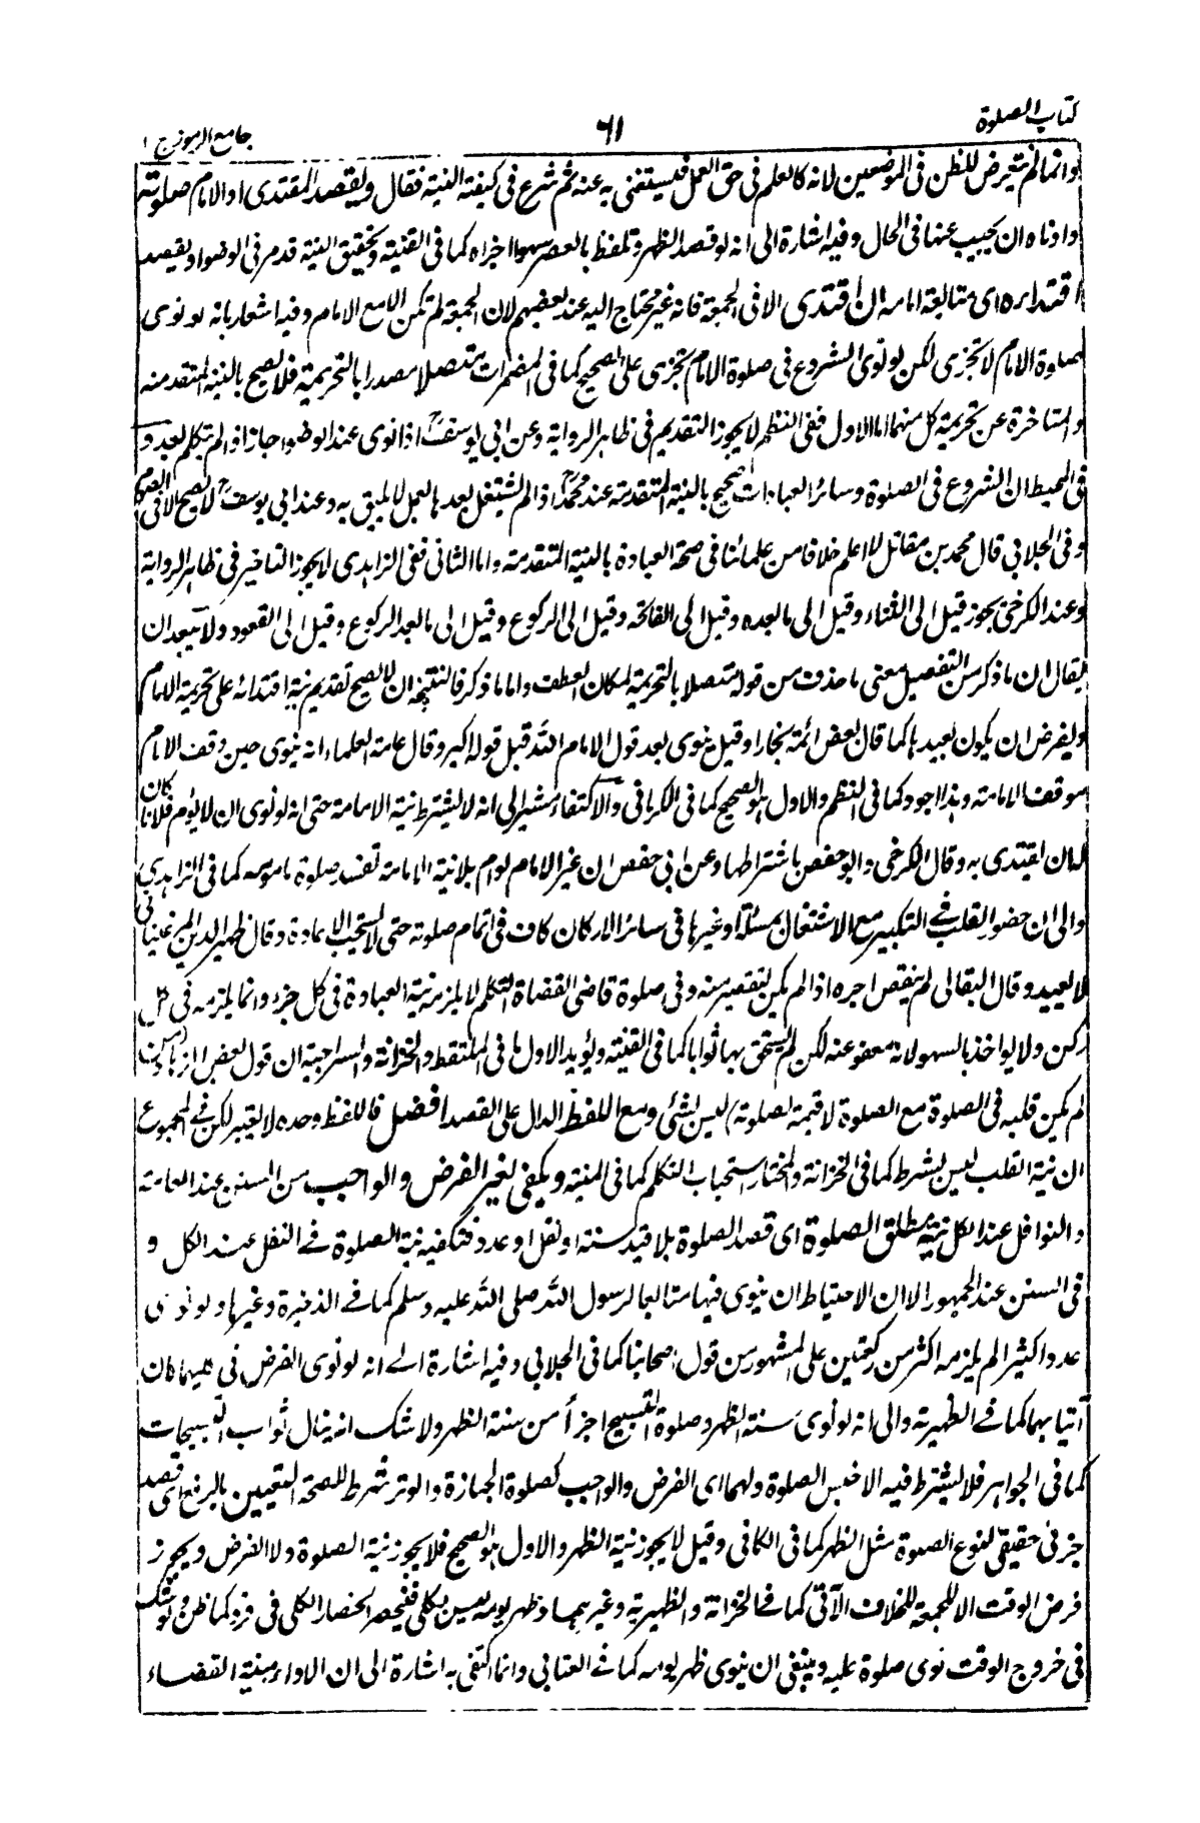 كتاب الصلوة
٦١
جامع الرموز ج ١
وانما لم يتعرض للظن فى الموضعين لانه كالعلم فى حق العمل فيستغنى به عنه ثم شرع فى كيفية النية فقال ويقصد المقتدى او الامام صلوته
وادناه ان يجيب عنها فى الحال وفيه اشارة الى انه لو قصد الظهر وتلفظ بالعصر سهوا اجزاه كما فى القنية وتحقيق النية قد مر فى الوضوء ويقصد
اقتداءه اى متابعة امامه ان اقتدى الا فى الجمعة فانه غير محتاج اليه عند بعضهم لان الجمعة لم تكن الا مع الامام وفيه اشعار بانه لو نوى
صلوة الامام لا تجزى لكن لو نوى الشروع فى صلوة الامام تجزى على الصحيح كما فى المضمرات متصلا مصدرا بالتحريمة فلا يصح بالنية المتقدمة
والمتاخرة عن تحريمة كل منهما اما الاول ففى النظم لا يجوز التقديم فى ظاهر الرواية وعن ابى يوسف رح اذا نوى عند الوضوء جاز اذا لم يتكلم بعده و
فى المحيط ان الشروع فى الصلوة وسائر العبادات صحيح بالنية المتقدمة عند محمد رح اذا لم يشتغل بعدها بعمل لا يليق به وعند ابى يوسف رح لا يصح الا فى الصوم
وفى الجلابى قال محمد بن مقاتل لا اعلم خلافا من علمائنا فى صحة العبادة بالنية المتقدمة واما الثانى ففى الزاهدى لا يجوز التاخير فى ظاهر الرواية
وعند الكرخى يجوز قيل الى الثناء وقيل الى ما بعده وقيل الى الفاتحة وقيل الى الركوع وقيل الى ما بعد الركوع وقيل الى القعود ولا يبعد ان
يقال ان ما ذكر من التفصيل معنى ما حذف من قوله متصلا بالتحريمة لمكان العطف واما ما ذكر فالنتيجة ان لا يصح تقديم نية اقتدائه على تحريمة الامام
وليفرض ان يكون بعيدها كما قال بعض ائمة بخارا وقيل ينوى بعد قول الامام الله قبل قوله اكبر وقال عامة العلماء انه ينوى حين وقف الامام
موقف الامامة وهذا اجود كما فى النظم والاول هو الصحيح كما فى الكرمانى والاكتفاء مشير الى انه لا يشترط نية الامامة حتى انه لو نوى ان لا يؤم فلانا كان
لفلان ان يقتدى به وقال الكرخى وابو حفص باشتراطها وعن ابى حفص ان غير الامام لو ام بلا نية الامامة تفسد صلوة ماموميه كما فى الزاهدى
والى ان حضور القلب فى التكبير مع الاشتغال بمسئلة او غيرها فى سائر الاركان كاف فى اتمام صلوته حتى لا يستحب الاعادة وقال ظهير الدين المرغينانى
لا يعيد وقال البقالى لم ينقص اجره اذا لم يكن لتقصير منه وفى صلوة قاضى القضاة المتكلم لا يلزمه نية العبادة فى كل جزء وانما يلزمه فى كل
ركن ولا يواخذ بالسهو لانه معفو عنه لكن لم يستحق بها ثوابا كما فى القنية ويؤيد الاول ما فى الملتقط والخزانة والسراجية ان قول بعض الزهاد من
لم يكن قلبه فى الصلوة مع الصلوة لا قيمة لصلوته ليس بشئى ومع اللفظ الدال على القصد افضل فاللفظ وحده لا يعتبر لكن فى المجموع
ان نية القلب ليس بشرط كما فى الخزانة والمختار استحباب التكلم كما فى المنية ويكفى لغير الفرض والواجب من السنة عند العامة
والنوافل عند الكل نية مطلق الصلوة اى قصد الصلوة بلا قيد سنة او نفل او عدد فتكفيه نية الصلوة فى النفل عند الكل و
فى السنن عند الجمهور الا ان الاحتياط ان ينوى فيها متابعا لرسول الله صلى الله عليه وسلم كما فى الذخيرة وغيرها ولو نوى
عددا كثيرا لم يلزمه اكثر من ركعتين على المشهور من قول اصحابنا كما فى الجلابى وفيه اشارة الى انه لو نوى الفرض فى كليهما كان
آتيا بهما كما فى الظهيرية والى انه لو نوى سنة الظهر وصلوة التسبيح اجزأ من سنة الظهر ولا شك انه ينال ثواب التسبيحات
كما فى الجواهر فلا يشترط فيه الا جنس الصلوة ولهما اى الفرض والواجب كصلوة الجنازة والوتر شرط للصحة التعيين بالرفع اى قصد
جزئى حقيقى لنوع الصلوة مثل الظهر كما فى الكافى وقيل لا يجوز نية الظهر والاول هو الصحيح فلا يجوز نية الصلوة ولا الفرض ويجوز
فرض الوقت الا للجمعة للخلاف الآتى كما فى الخزانة والظهيرية وغيرهما وظهر يومه ليس بكلى فينحصر انحصار الكلى فى فرد كما ظن ولو شك
فى خروج الوقت نوى صلوة عليه وينبغى ان ينوى ظهر يومه كما فى العتابى وانما اكتفى به اشارة الى ان الاداء بنية القضاء